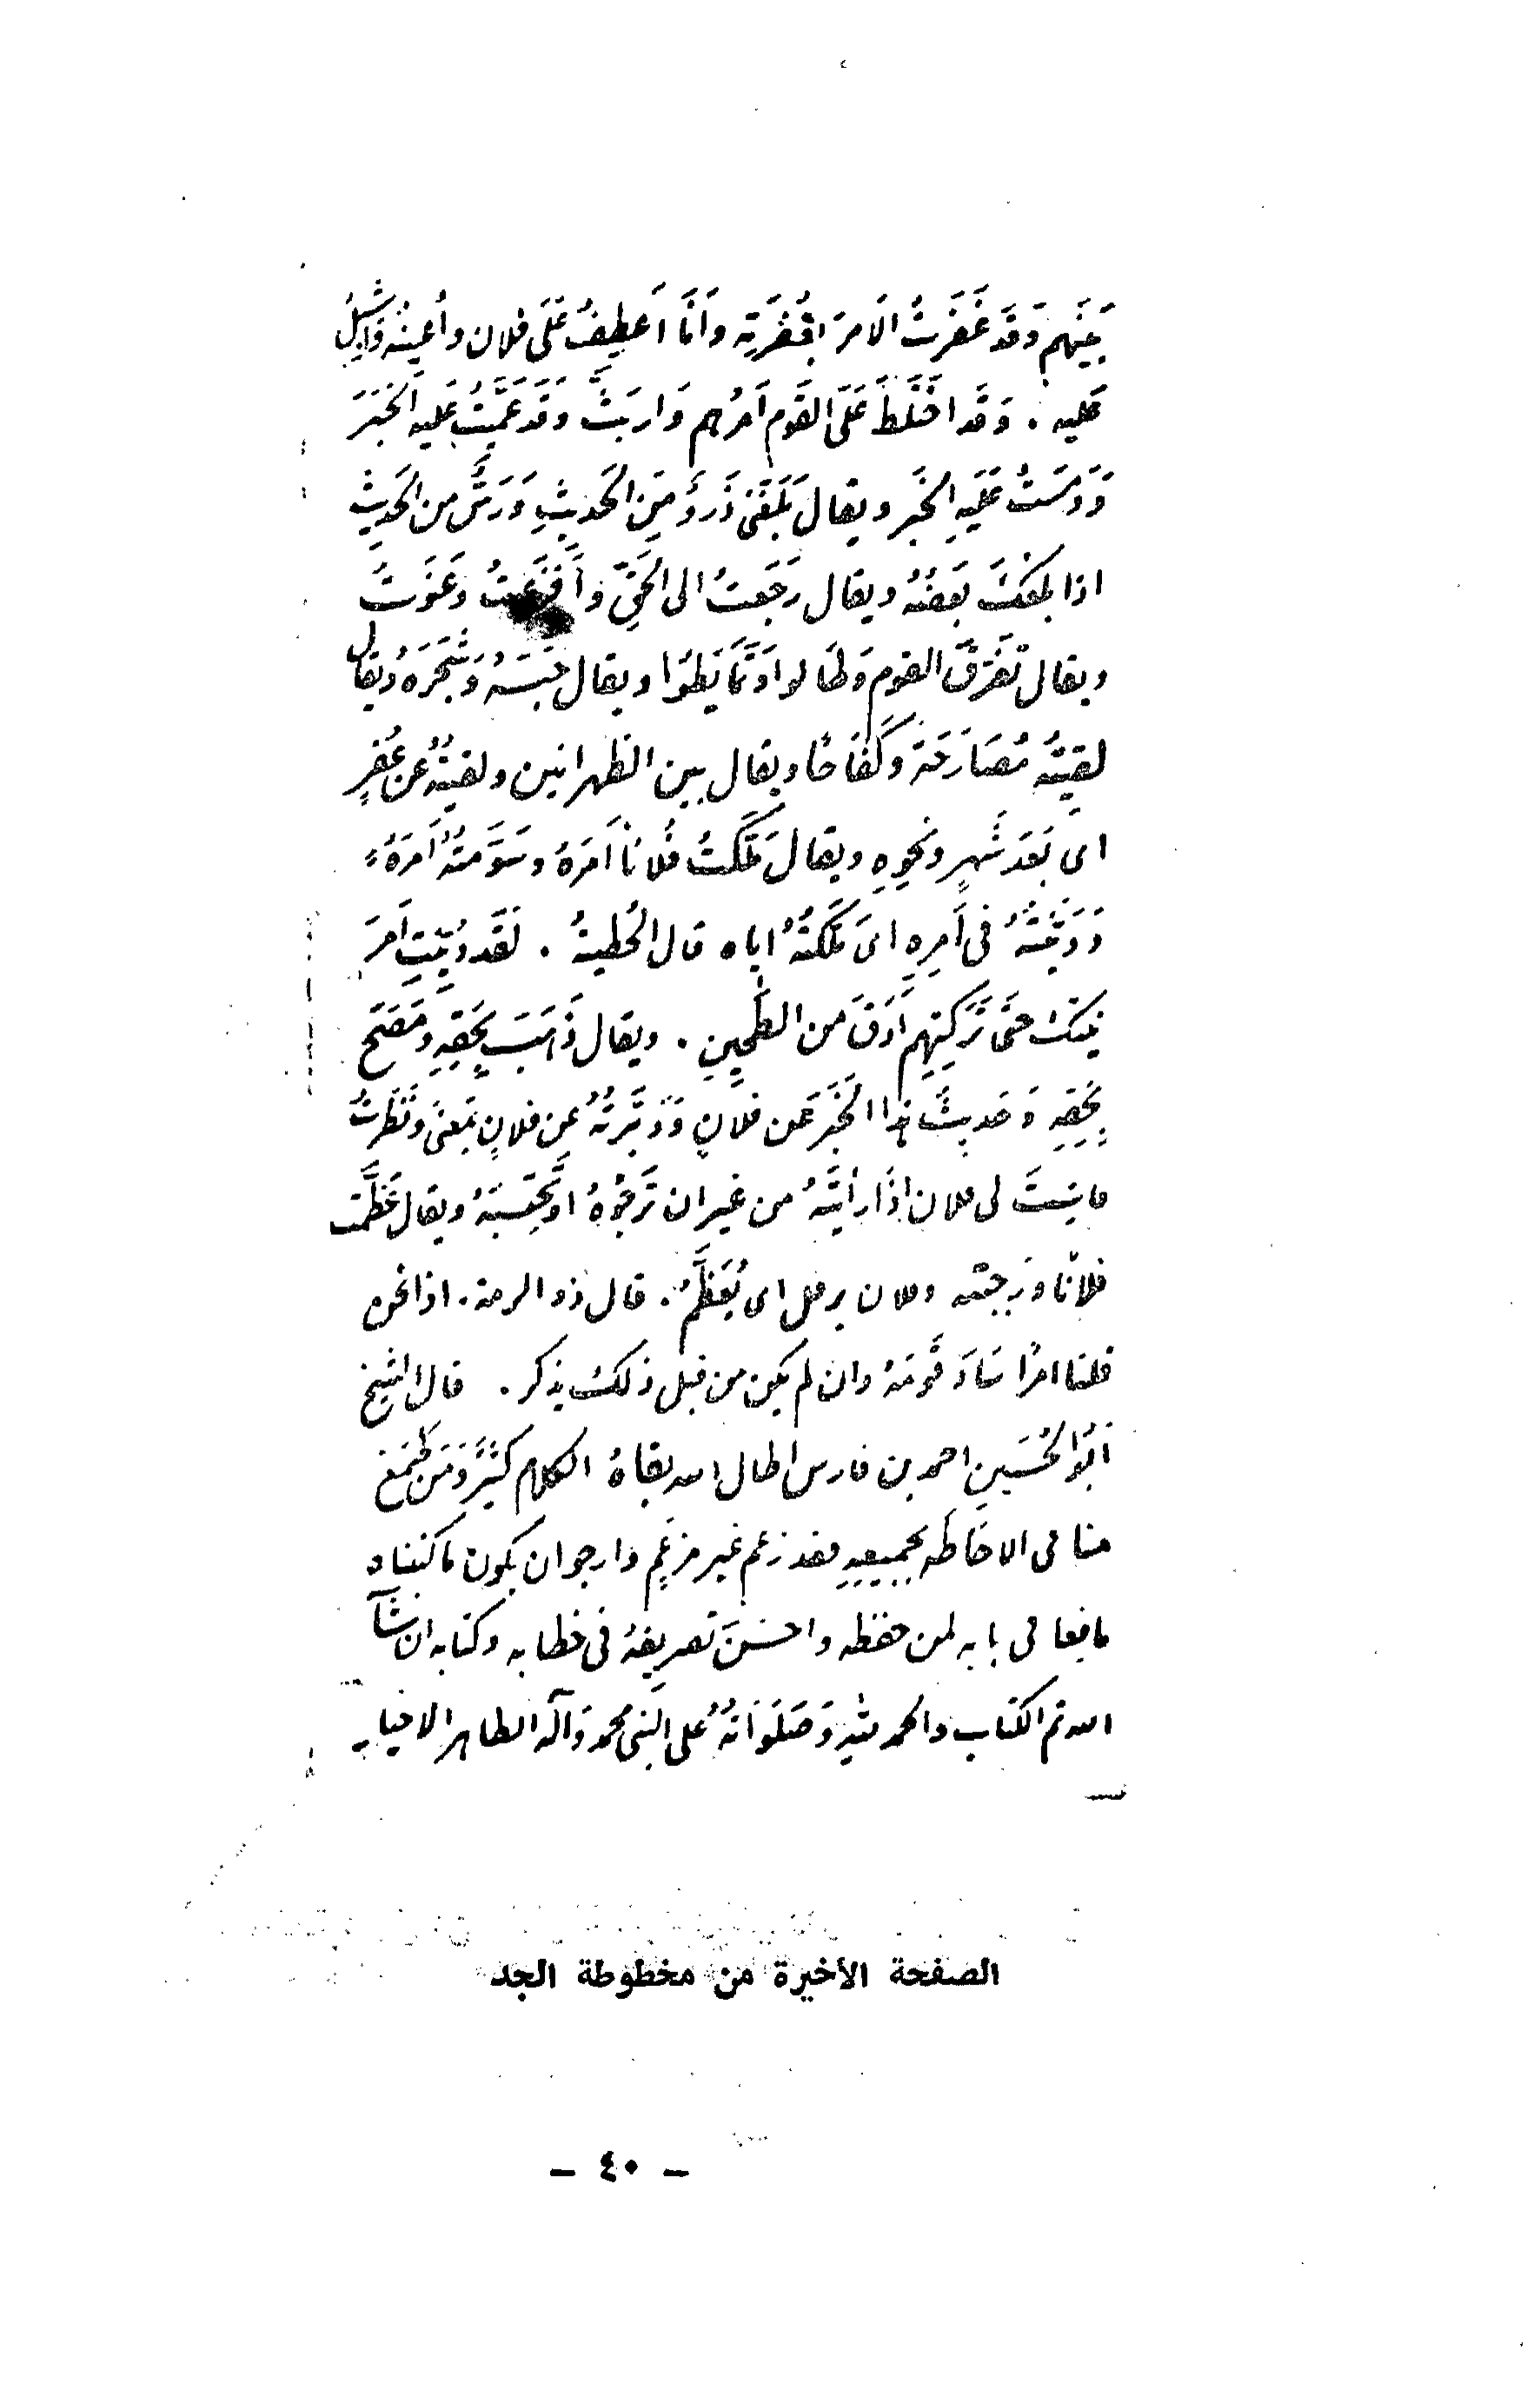 بَينَهم وَقَد غَفَرتُ الاَمرَ بغُفرَتِه وَاَنَا اَعطِفُ عَلَى فلان واُعِينُه وَاُشبِلُ
عَليه . وَقَد اختَلَطَ عَلَى القَوم اَمرُهم وَاربَثَّ وَقَد عَمَّيتُ عَليه الخَبَرَ
وَدَمَستُ عَلَيهِ الخَبَر ويقال بَلَغَنى ذَروٌ مِنَ الحَديثِ وَرَسٌّ من الحَدِيثِ
اذا بلغك بَعضُهُ ويقال رَجَعتُ الى الحَقِّ وَ وعَنَوتُ
ويقال تَفَرَّقَ القوم وَتَمَايَطُوا ويقال حَبَسَهُ وَشَجَرَهُ ويقال
لقِيتُه مُصَارَحَةً وكِفَاحًا ويقال بين الظهرانين ولقيتُهُ عن عُفرٍ
اى بَعَد شَهرٍ ونَحوِهِ ويقال مَلَّكتُ فُلانا اَمرَهُ وسَوَّمتُهُ اَمرَهُ
وَدَيَّنتُهُ فى اَمرِهِ اى مَلَّكتُهُ اياه قال الحُطيئةُ . لَقَد دُيِّنتِ اَمرَ
بَنيك حتّى تَرَكتِهِم اَدَقَّ من الطَّحِينِ . ويقال ذَهَبَ بِحَقِهِ ومَصَحَ
بِحَقِهِ وَحَديثُ هذا الخَبَر عَن فلانٍ وَدَبَّرتُهُ عن فلانٍ بمَعنَى ونَظَرتُ
ما لى فلان اِذَا رأيتَهُ من غير ان تَرجُوهُ او تَحتَسِبَهُ ويقال عَظَّمت
فلانًا ورجبته وفلان يرفل اى يُعَظَّمُ . قال ذو الرمة . اذا نحن
فلنا امرًا سَادَ قَومَهُ وان لم يكن من قبل ذلك يذكر . قال الشيخ
اَبُو الحُسَينِ احمد بن فارس اطال الله بقاهُ الكلام كَثيرٌ وَمَن طَمَع
منا فى الاحَاطَه بجميعِهِ فقد زعم غير مزعَمٍ وارجوان يكون ما كتبناه
نافعا فى بابه لمن حفظه واحسَنَ تصريفهُ فى خطابه وكتابه ان شآ
الله تم الكتاب والحمد للهِ وَصَلَوَاتُهُ على النبى محمد وَآلِه الطاهر الاخيار
الصفحة الأخيرة من مخطوطة الجد
- ٤٠ -